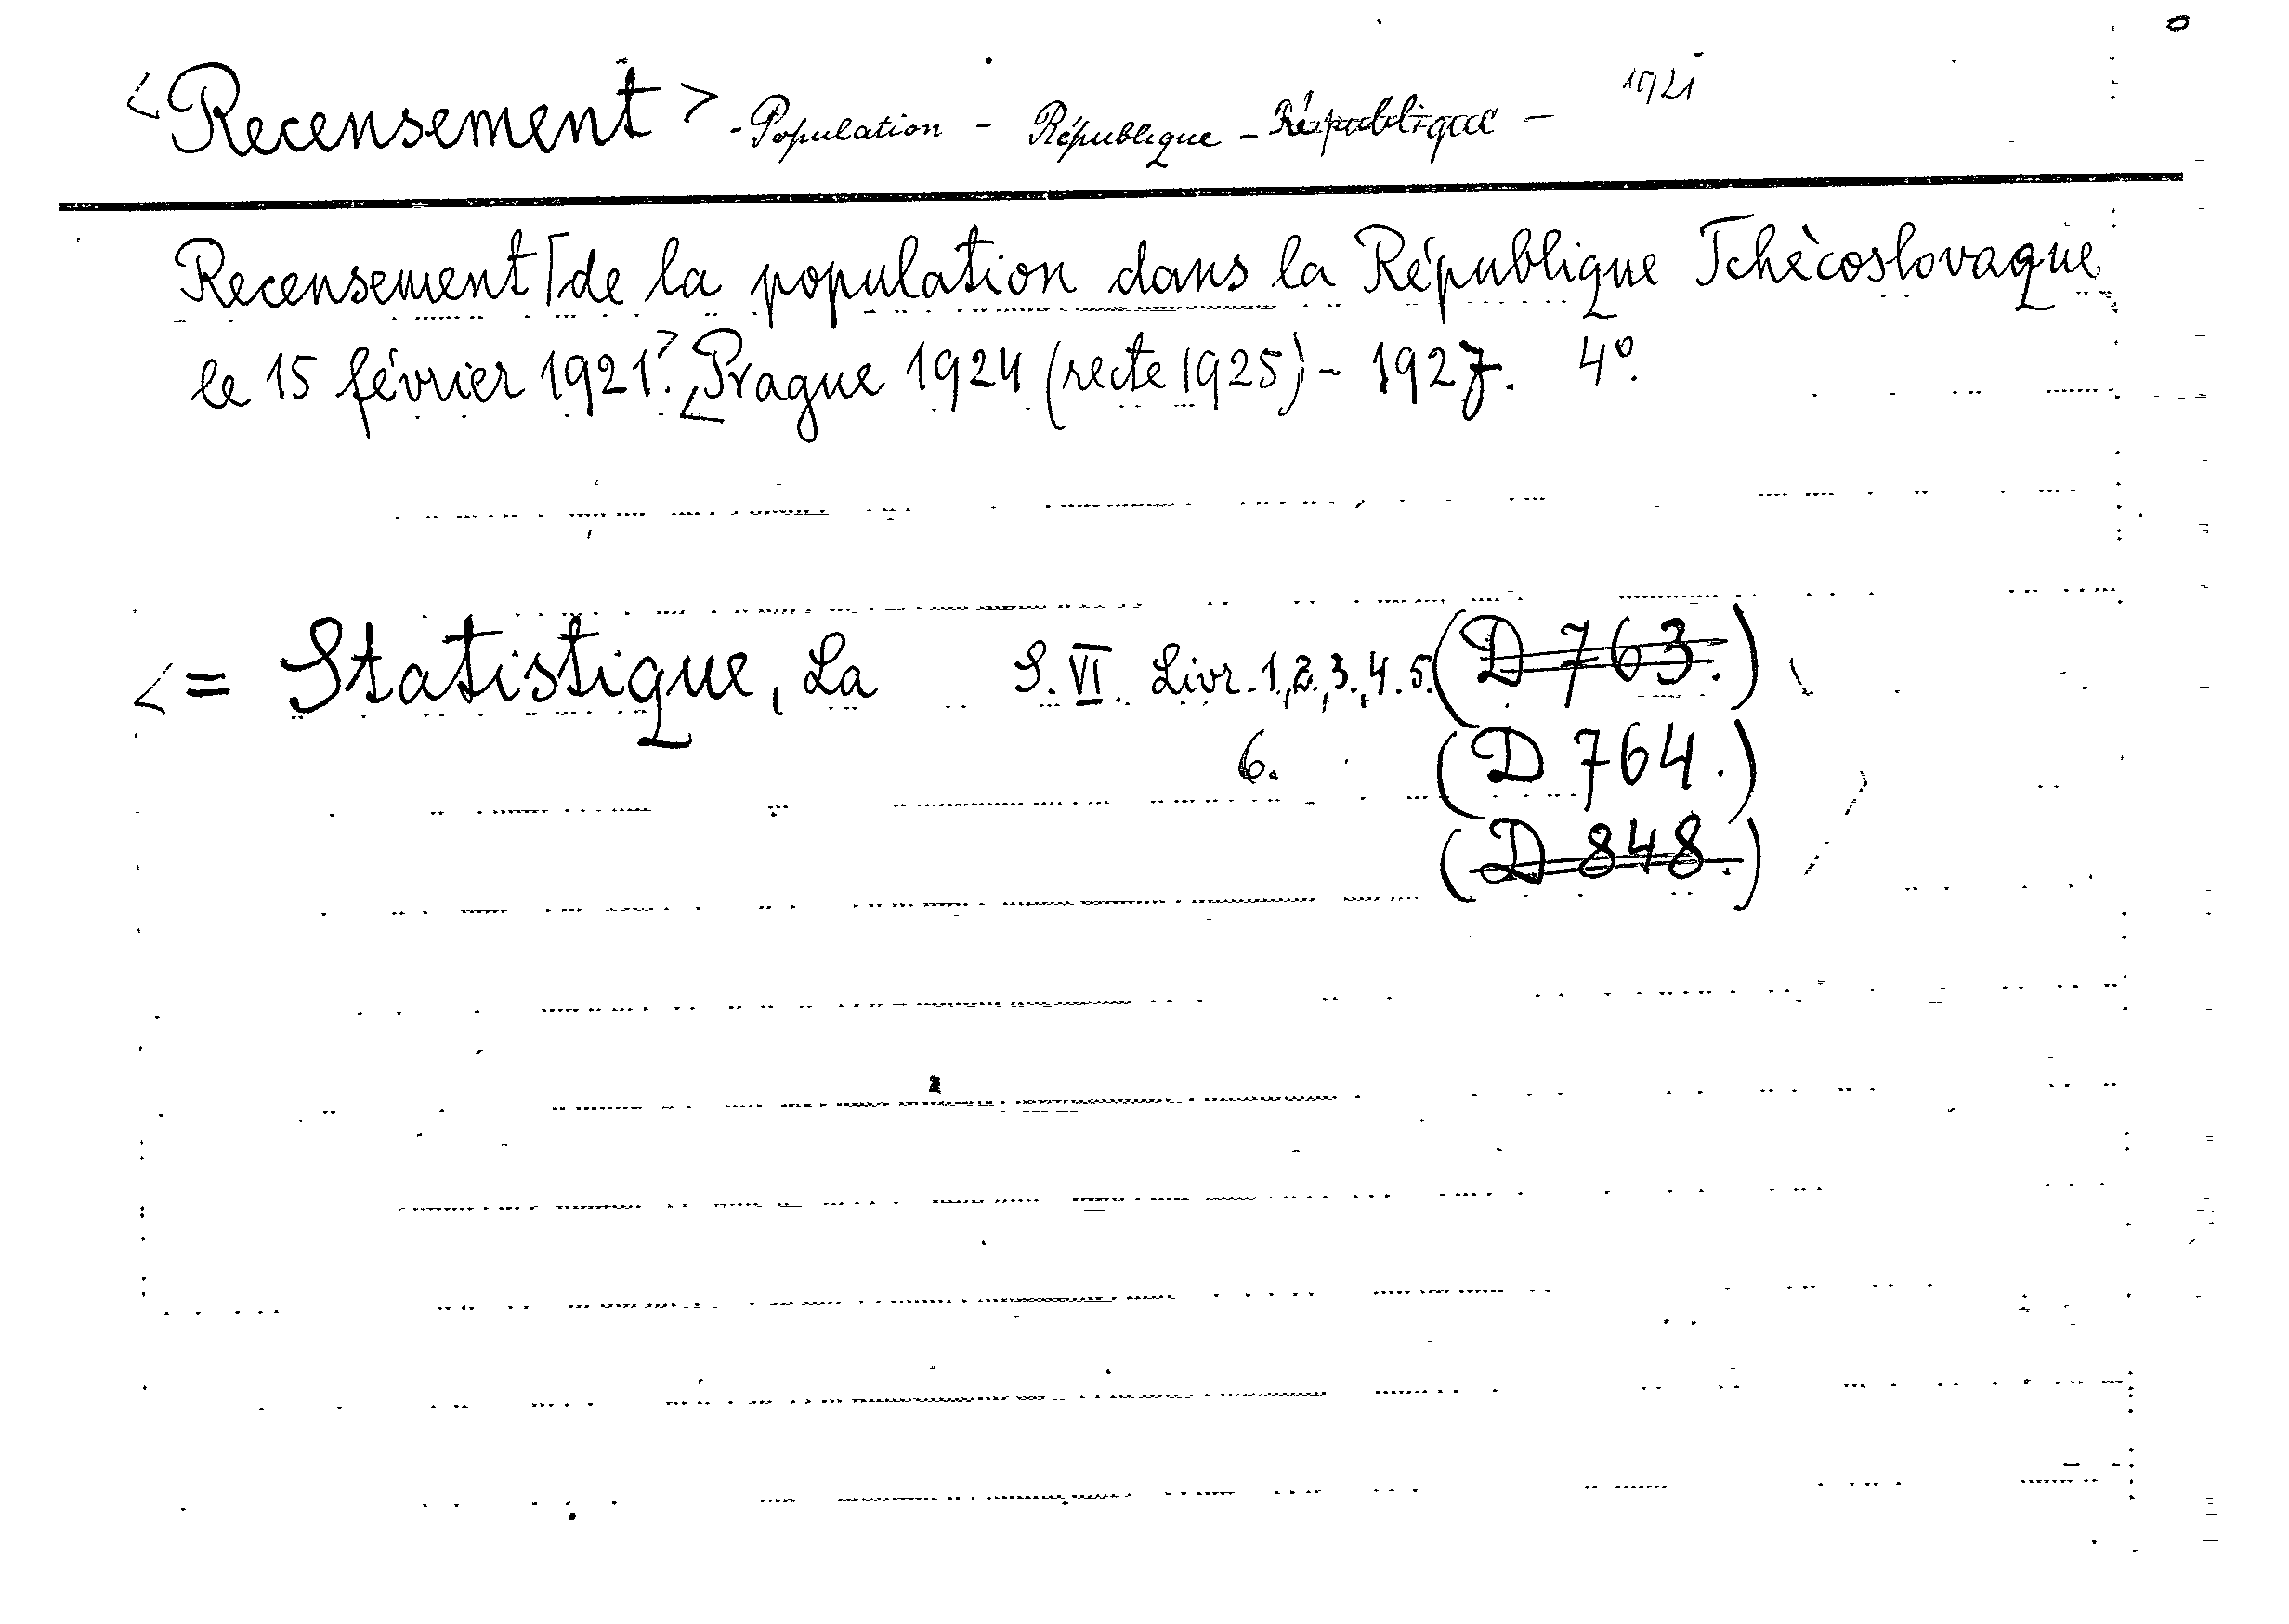 <Recensement> - Population - République - République - 1921
Recensement [de la population dans la République Tchécoslovaque
le 15 février 1921.> <Prague 1924 (recte 1925) - 1927. 4°.
<= Statistique, La S. VI. Livr. 1., 2., 3., 4. 5. (D 763.)
6. (D 764.)
(D 848.)